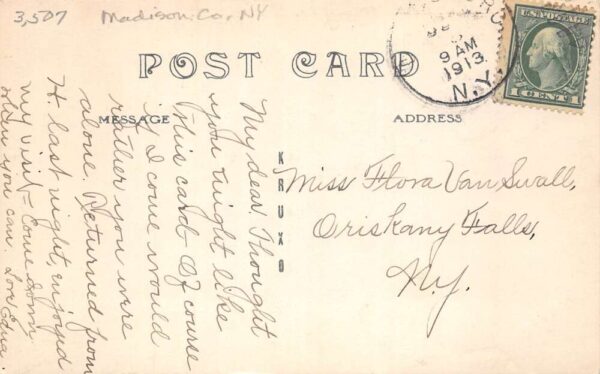 3,507 Madison Co, NY
POST CARD
MESSAGE
ADDRESS
9 AM
1913
N.Y.
U.S. POSTAGE
1 CENT 1
KRUXO
My dear. Thought
you might like
this card. Of course
if I come would
rather you were
alone. Returned from
H. last night, enjoyed
my visit = Come down
when you can. Love Edna.
Miss Flora Van Swall,
Oriskany Falls,
N.Y.